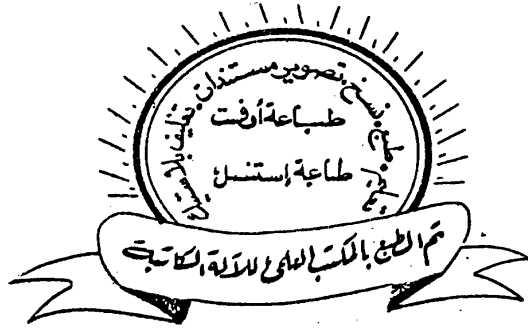 تعليم. طبع. نسخ. تصوير مستندات. تغليف بلاستيك
طباعة أوفست
طباعة إستنسل
تم الطبع بالمكتب العلمى للآلة الكاتبة